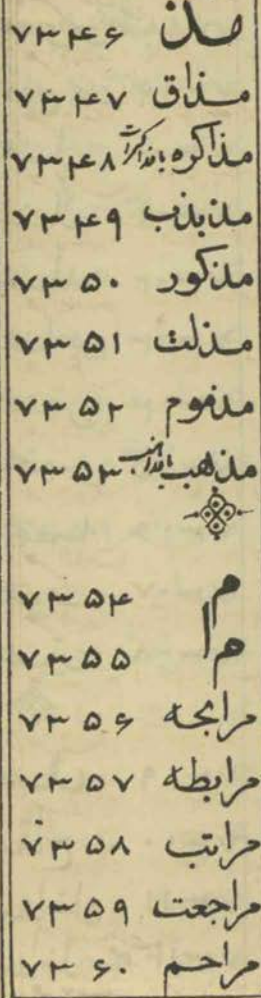 مذ ۷۳۴۶
مذاق ۷۳۴۷
مذاکره یا مذاکرات ۷۳۴۸
مذبذب ۷۳۴۹
مذکور ۷۳۵۰
مذلت ۷۳۵۱
مذموم ۷۳۵۲
مذهب یا مذاهب ۷۳۵۳
م ۷۳۵۴
مرا ۷۳۵۵
مرابحه ۷۳۵۶
مرابطه ۷۳۵۷
مراتب ۷۳۵۸
مراجعت ۷۳۵۹
مراحم ۷۳۶۰